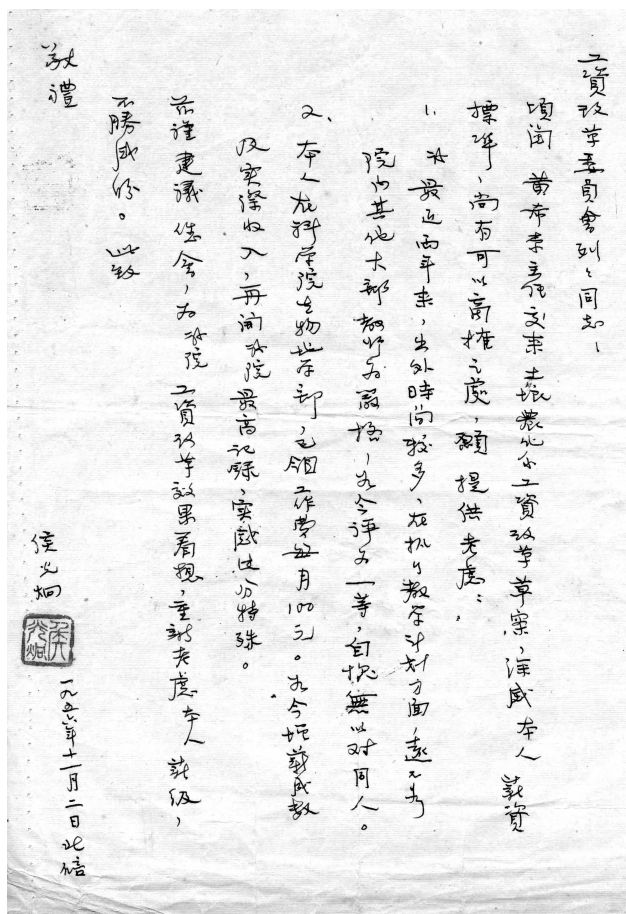 工資改革委員會列々同志：
頃閱黃希素主任交来土壤農化系工資改革草案，深感本人薪資
標準，尚有可以商榷之處，願提供考慮：
1. 我最近兩年来，出外時间較多，在执行教学计划方面，遠不如
院内其他大部教师為嚴格，如今評為一等，自愧無以对同人。
2、本人在科学院生物地学部，已領工作费每月100元。如今增薪成数
及实際收入，再闻我院最高记録，实感过分特殊。
茲谨建議 貴會，为我院工資改革效果着想，重新考慮本人薪级，
不勝感盼。此致
敬禮
侯光炯
一九五六年十一月二日北碚